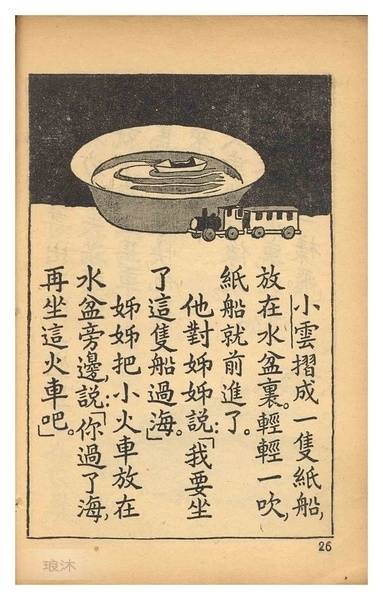 小雲摺成一隻紙船,
放在水盆裏。輕輕一吹,
紙船就前進了。
他對姊姊說:「我要坐
了這隻船過海。」
姊姊把小火車放在
水盆旁邊,說:「你過了海,
再坐這火車吧。」
26
琅沐